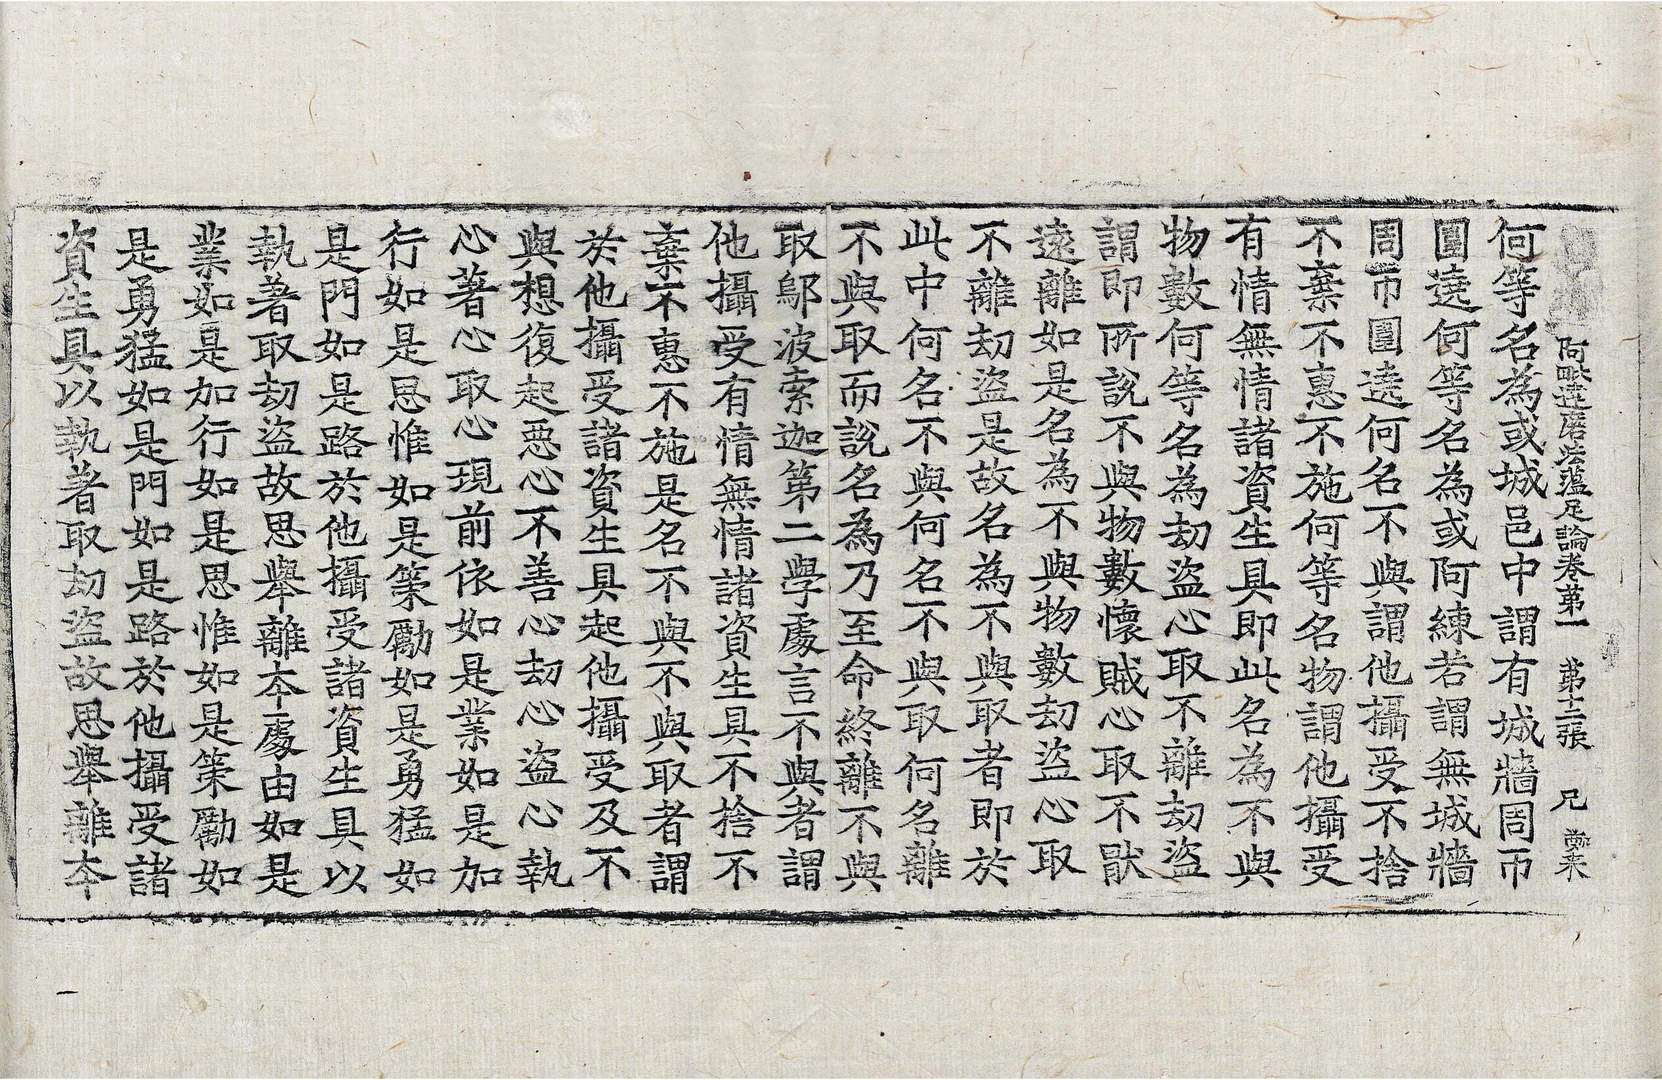 阿毗達磨法蘊足論卷第一　第十二張　兄
何等名為或城邑中謂有城牆周帀
圍遶何等名為或阿練若謂無城牆
周帀圍遶何名不與謂他攝受不捨
不棄不惠不施何等名物謂他攝受
有情無情諸資生具即此名為不與
物數何等名為劫盜心取不離劫盜
謂即所說不與物數懷賊心取不猒
遠離如是名為不與物數劫盜心取
不離劫盜是故名為不與取者即於
此中何名不與何名不與取何名離
不與取而說名為乃至命終離不與
取鄔波索迦第二學處言不與者謂
他攝受有情無情諸資生具不捨不
棄不惠不施是名不與不與取者謂
於他攝受諸資生具起他攝受及不
與想復起惡心不善心劫心盜心執
心著心取心現前依如是業如是加
行如是思惟如是策勵如是勇猛如
是門如是路於他攝受諸資生具以
執著取劫盜故思舉離本處由如是
業如是加行如是思惟如是策勵如
是勇猛如是門如是路於他攝受諸
資生具以執著取劫盜故思舉離本